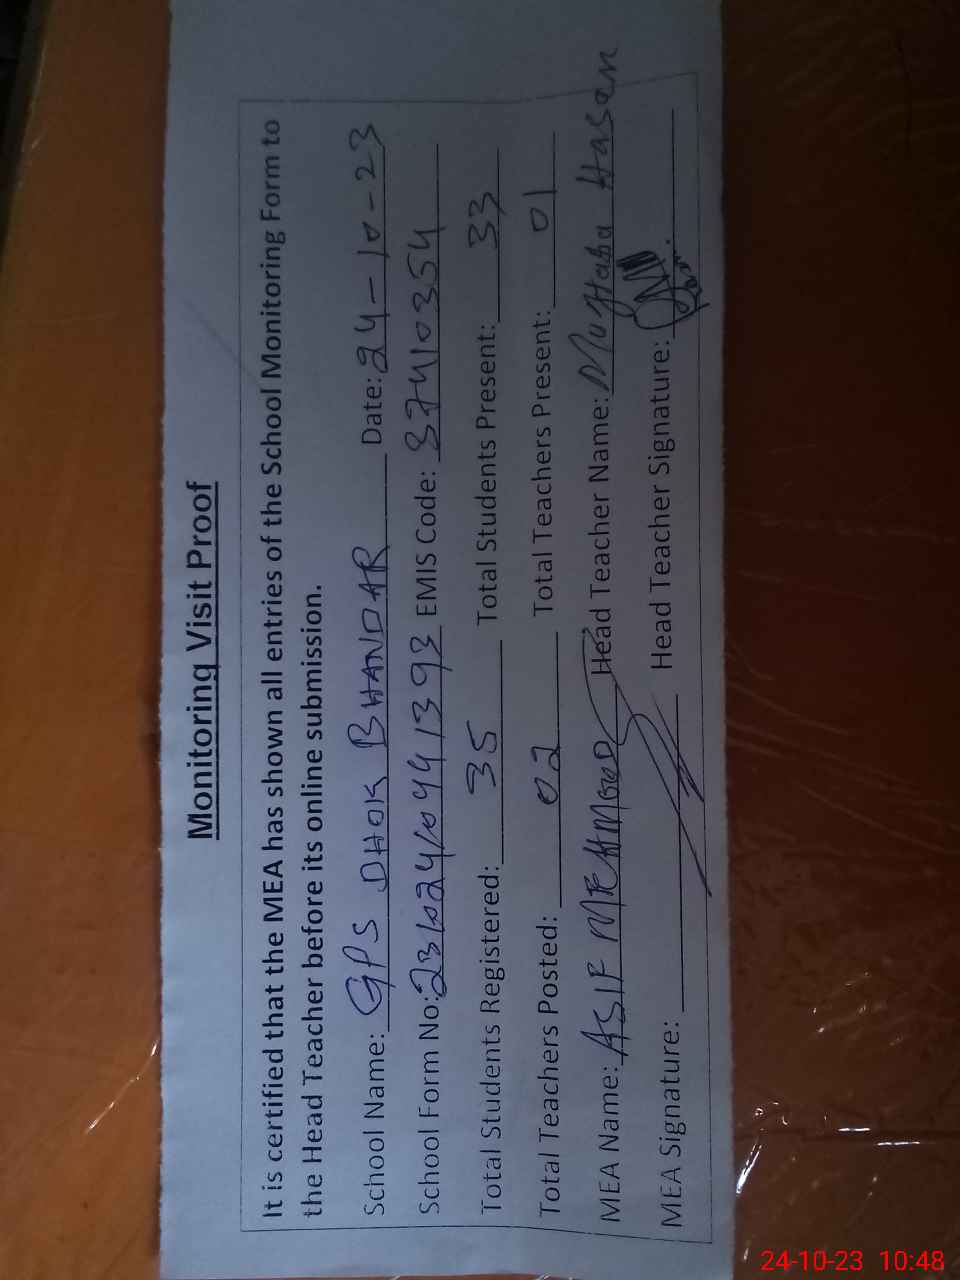 Monitoring Visit Proof
It is certified that the MEA has shown all entries of the School Monitoring Form to
the Head Teacher before its online submission.
School Name: GPS DHOK BHANDAR Date: 24-10-23
School Form No: 231024/10441393 EMIS Code: 37410354
Total Students Registered: 35 Total Students Present: 33
Total Teachers Posted: 02 Total Teachers Present: 01
MEA Name: ASIF MEHMOOD Head Teacher Name: Mujtaba Hasan
MEA Signature: Head Teacher Signature:
24-10-23 10:48